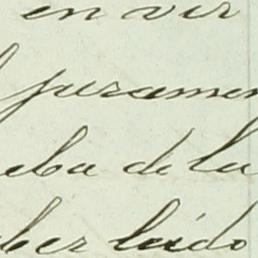 en vir
juramen
eba de la
ber leido